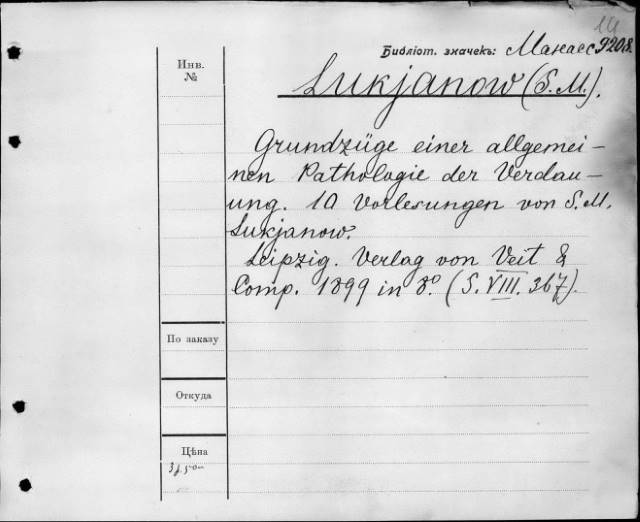 14
Библіот. значекъ: Манасс 9208.
Инв.
№
Lukjanow (S. M.).
Grundzüge einer allgemei-
nen Pathologie der Verdau-
ung. 10 Vorlesungen von S. M.
Lukjanow.
Leipzig. Verlag von Veit &
Comp. 1899 in 8º. (S. VIII. 367).
По заказу
Откуда
Цѣна